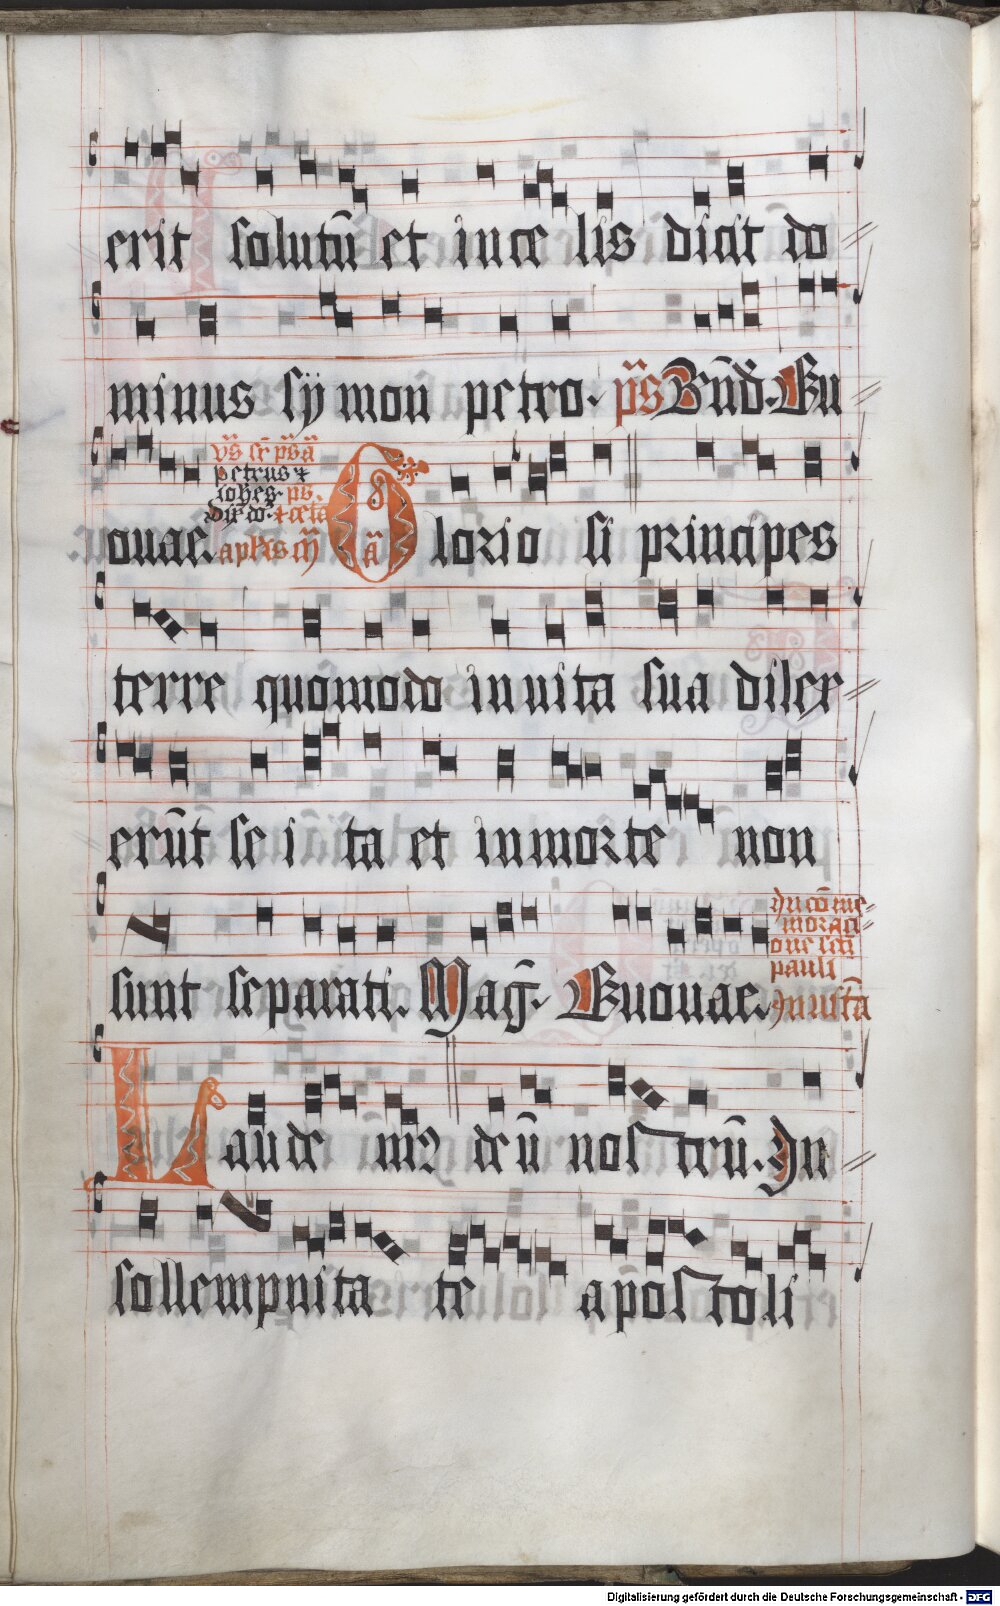 erit solutū et in ce lis dicit do
minus sÿmon petro. p̄s Bn̄d. Eu
ouae. 
petrus ⁊
ioh̄es. ps.
Glorio si principes
terre quomodo in uita sua dilex
erūt se i ta et in morte non
sunt separati. Maḡ. Euouae.
In cōme
moraci
one sc̄i
pauli
Inuitā
Laude mꝰ deū nostrū. In
sollempnita te ap̄ostoli
Digitalisierung gefördert durch die Deutsche Forschungsgemeinschaft - DFG